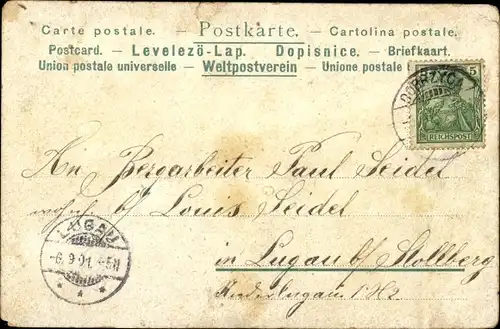 Carte postale. — Postkarte. — Cartolina postale.
Postcard. — Levelezö-Lap. Dopisnice. — Briefkaart.
Union postale universelle — Weltpostverein — Unione postale
DOBRZYC
5
REICHSPOST
An Bergarbeiter Paul Seidel
wohnh. b/ Louis Seidel
in Lugau b/ Stollberg
LUGAU
-6.9.01. 4-5N